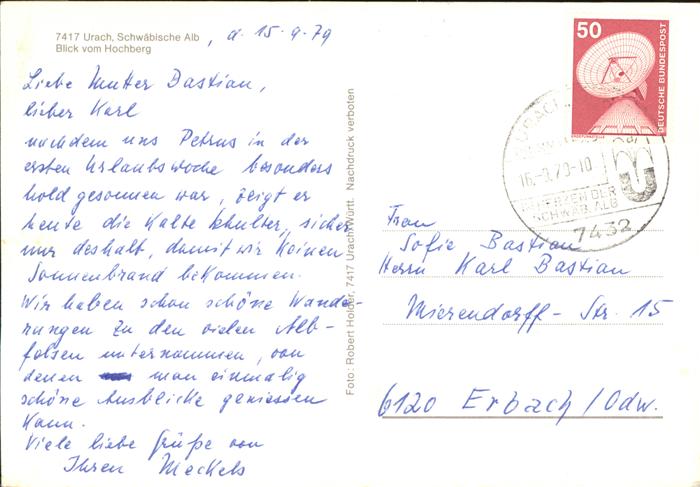 7417 Urach, Schwäbische Alb
Blick vom Hochberg
, d. 15.9.79
Liebe Mutter Bastian,
lieber Karl
nachdem uns Petrus in der
ersten Urlaubswoche besonders
hold gesonnen war, zeigt er
heute die kalte Schulter, sicher
nur deshalb, damit wir keinen
Sonnenbrand bekommen.
Wir haben schon schöne Wande-
rungen zu den vielen Alb-
felsen unternommen, von
denen man einmalig
schöne Ausblicke geniessen
kann.
Viele liebe Grüße von
Ihren Meckels
Foto: Robert Holder, 7417 Urach/Württ. Nachdruck verboten
50
DEUTSCHE BUNDESPOST
URACH
16.-9.79-10
HERZEN DER
SCHWÄB. ALB
7432
Frau
Sofie Bastian
Herrn Karl Bastian
Mierendorff-Str. 15
6120 Erbach/Odw.